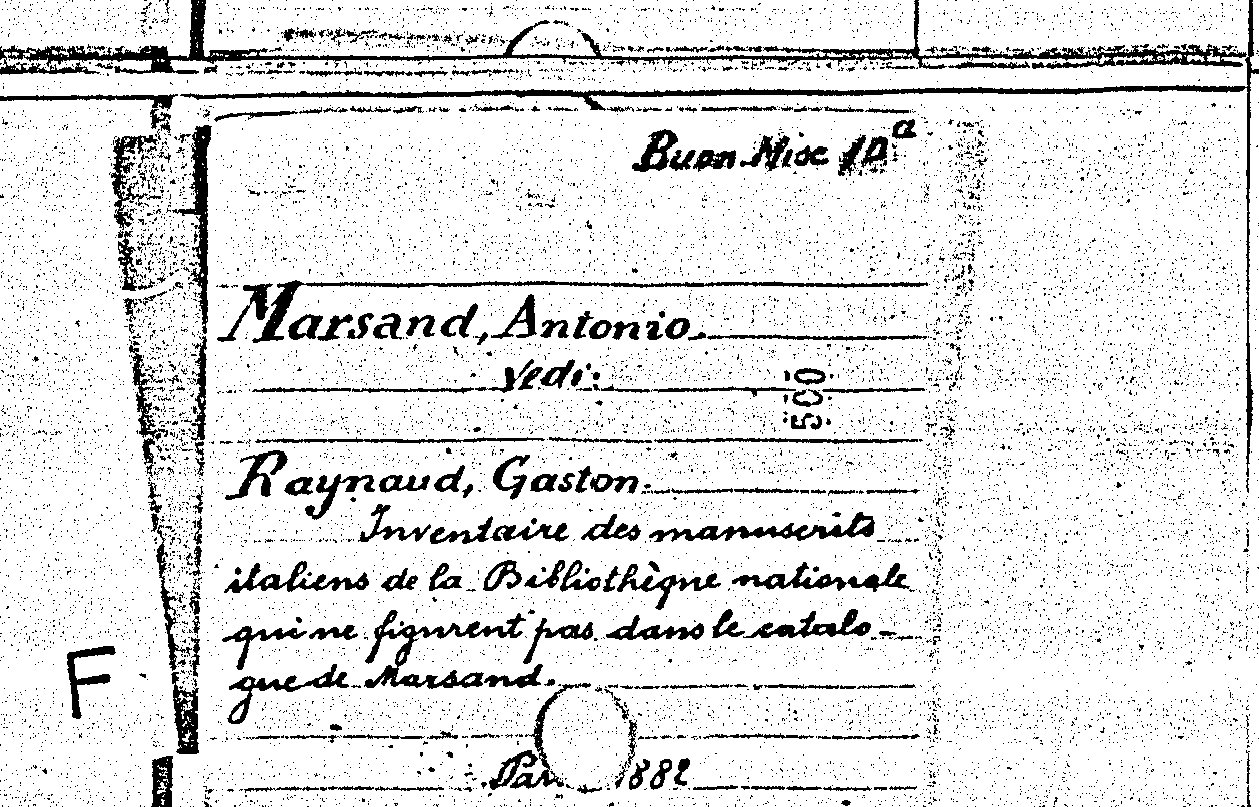 Buon. Misc
Marsand, Antonio.
vedi:
500
Raynaud, Gaston.
Inventaire des manuscrits
italiens de la Bibliothèque nationale
qui ne figurent pas dans le catalo-
gue de Marsand.
F
1882